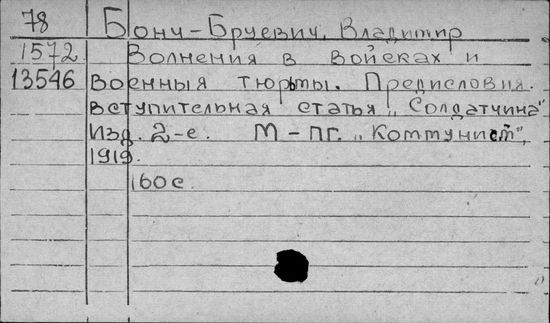 78 Бонч-Бруевич, Владимир
1572 Волнения в войсках и
13546 военныя тюрьмы. Предисловия.
Вступительная статья „Солдатчина"
Изд. 2-е. М-пг. „Коммунист",
1919.
160 с.